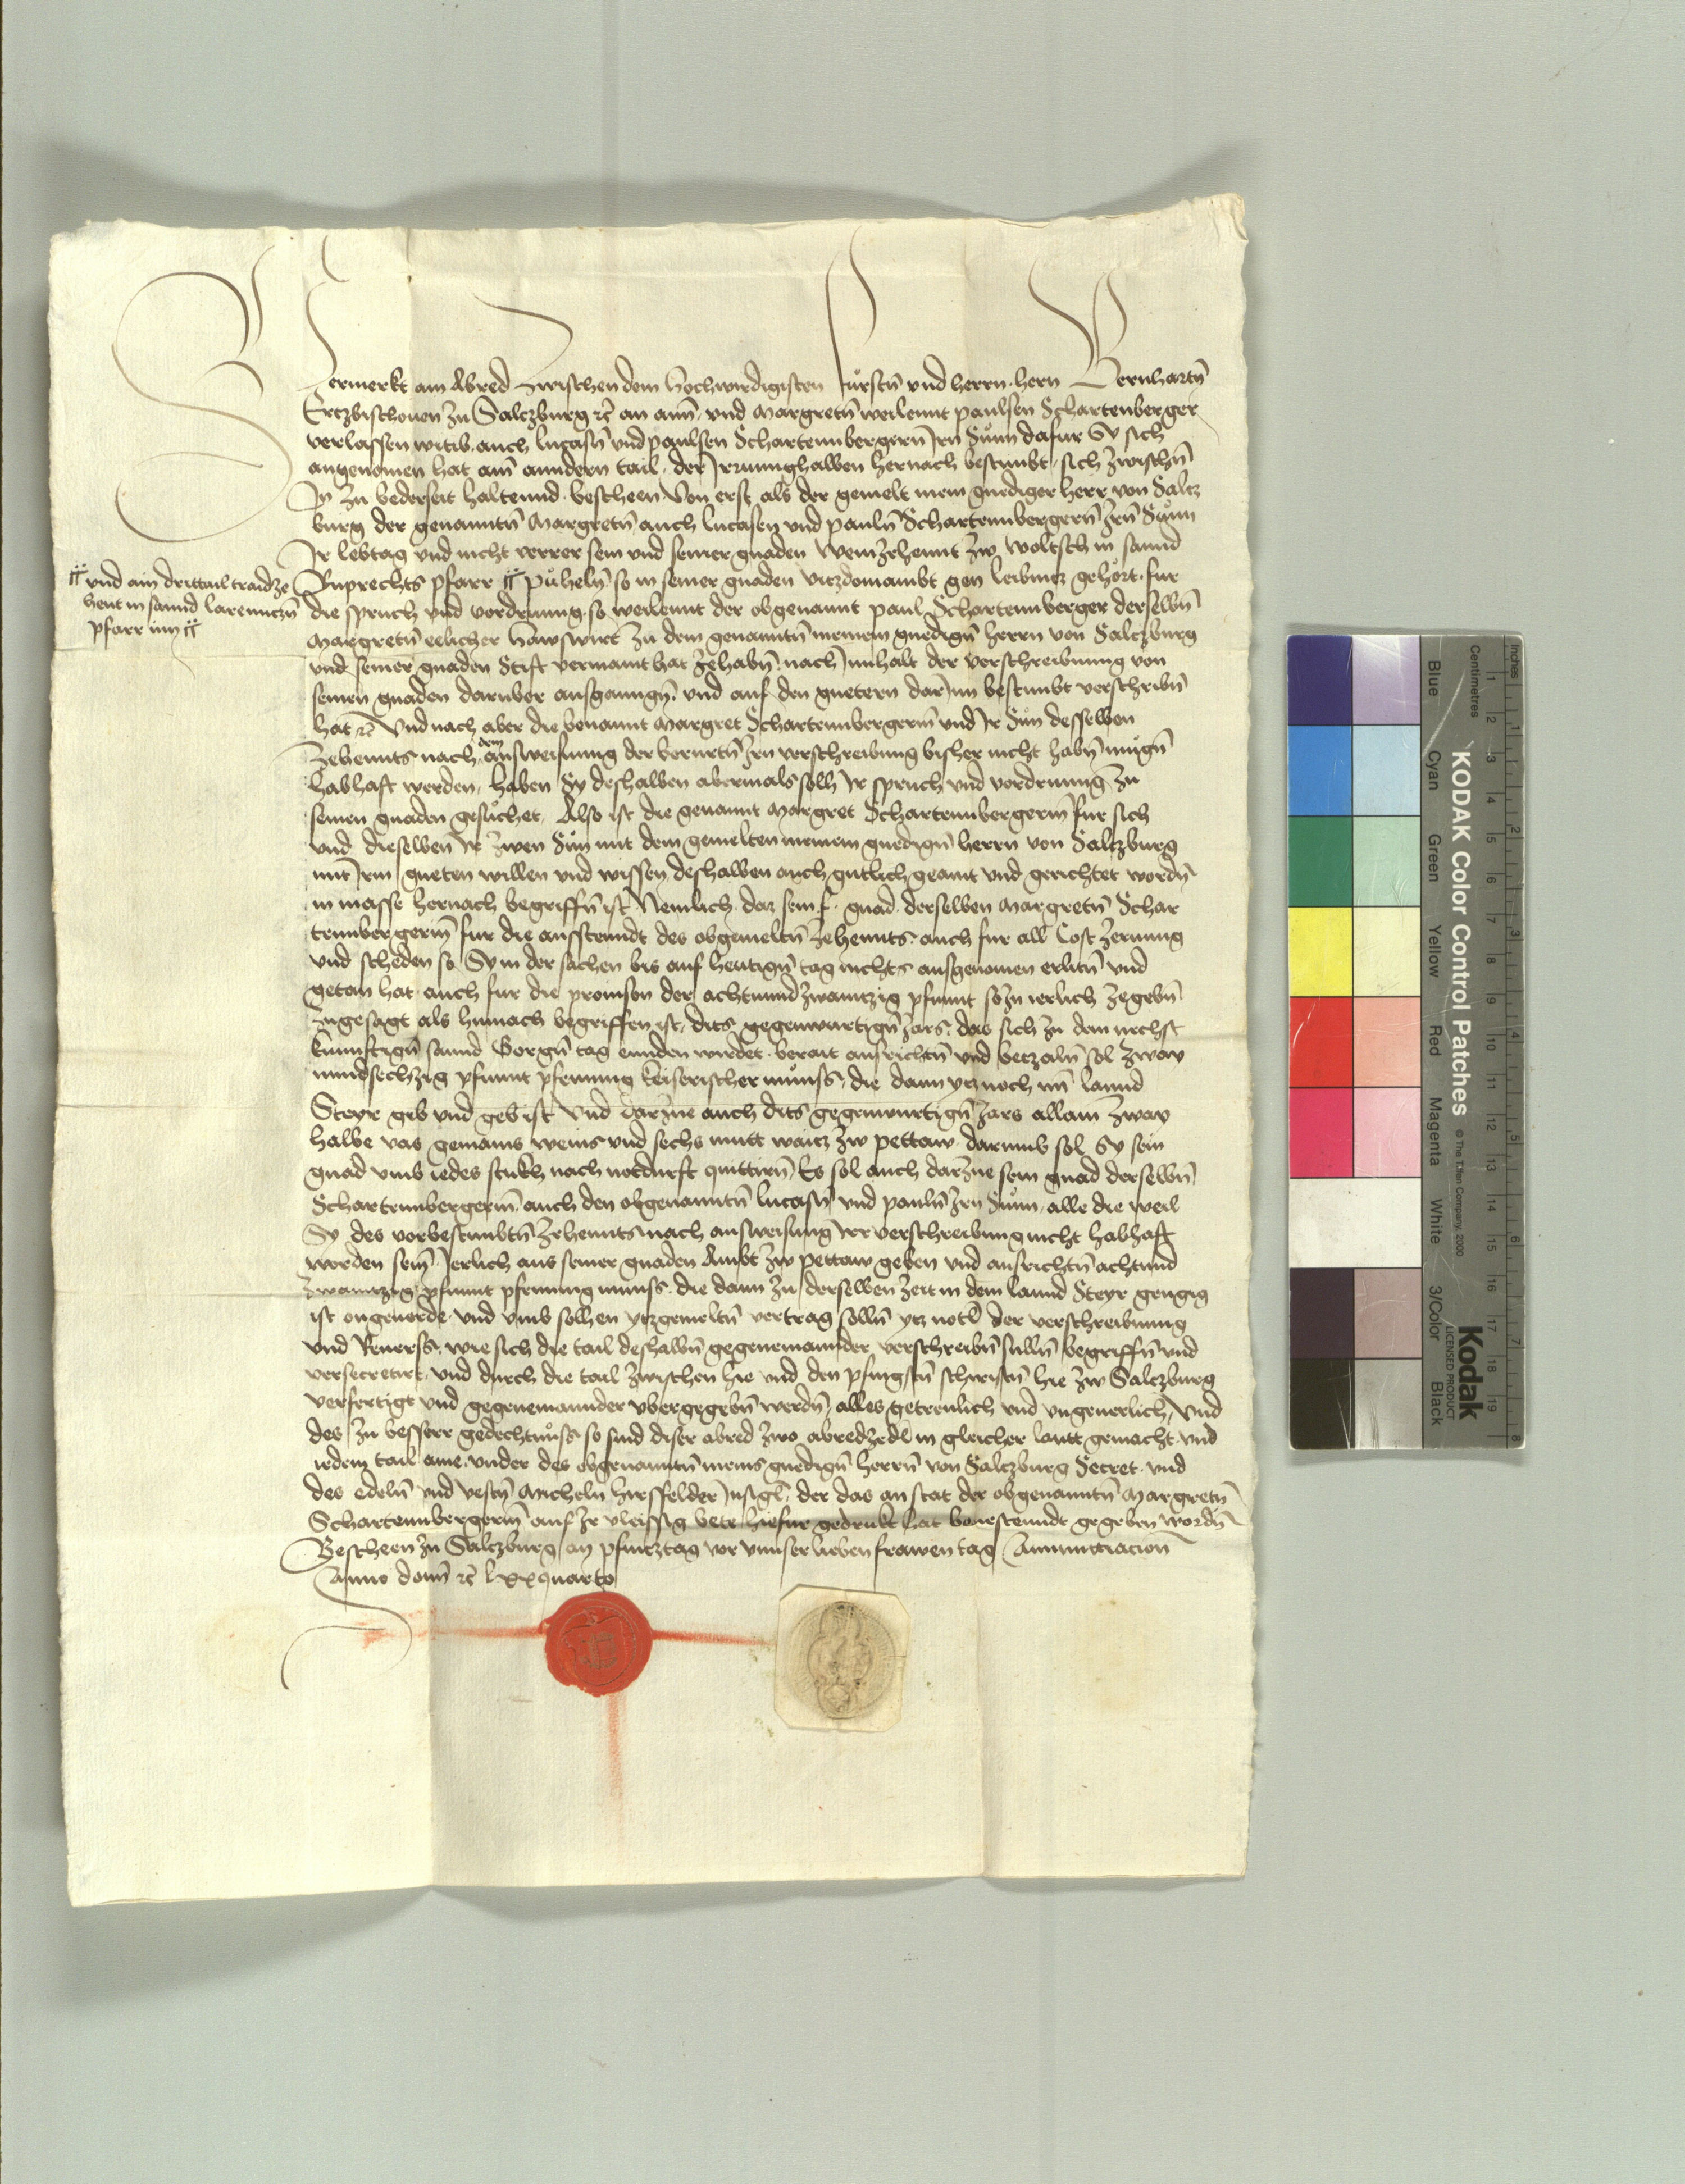 Vermerkt ain Abred zwischen dem Hochwirdigisten fürstn̄ vnd herrn hern Bernhartn̄
Ertzbischouen zu Saltzburg ꝛc̄ an ainē vnd Margretn̄ weilennt paulsen Schartenberger
verlassen witib auch lucasn̄ vnd paulsen Schartennbergern Jrn Sůnn dafur Sy sich
angenomen hat am̄ anndern tail der Jrrunnghalben hernach bestimbt sich zwischn̄
Jn zu bederseit haltennd bescheen Von erst als der gemelt mein gnediger herr von Saltz
burg der genanntn̄ Margretn̄ auch lucasen vnd pauln̄ Schartennbergern̄ Jrn̄ Sůnn
Jr lebtag vnd nicht verrer sein vnd seiner gnaden Weinzehennt zw woltsch in sannd
Ruprechts pfarr # pücheln̄ so in seiner gnaden vitzdomambt gen leibnitz gehört fur
# vnd ain drittail traidze
hent in sannd larenntzn̄
pfarr inn #
die spruch vnd vordrunng so weilennt der obgenant paul Schartennberger derselbn̄
Margretn̄ eelicher Hawswirt zu dem genanntn̄ meinem gnedign̄ herrn von Saltzburg
vnd seiner gnaden Stift vermaint hat zehabn̄ nach Innhalt der verschreibunng von
seinen gnaden daruber ausganngn̄ vnd auf den guetern dar Inn bestimbt verschribn̄
hat ꝛc̄ Vnd nach aber die benannt Margret Schartennbergerin̄ vnd Jr Sůn desselben
Zehennts nach dem ausweisunng der berurtn̄ Jrn verschreibung bisher nicht habn̄ mügn̄
habhaft werden, haben Sy deshalben abermals solh Jr spruch vnd vordrunng zu
seinen gnaden gesüchet, Also ist die genannt Margret Schartennbergerin̄ fur sich
vnd dieselben Jr zwen Sün mit dem gemelten meinem gnedign̄ herrn von Saltzburg
mit Jrm gueten willen vnd wissen deshalben auch gutlich geaint vnd gerichtet wordn̄
in masse hernach begriffn̄ ist Nemlich daz sein f. gnad derselben Margretn̄ Schar
tennbergerin̄ fur die ausstenndt des obgemeltn̄ zehennts auch fur all Cost zerunng
vnd scheden so Sy in der sachen bis auf heutign̄ tag nichts ausgenomen erlitn̄ vnd
getan hat auch fur die prouison der achtunndzwaintzig pfunt so Jn ierlich zegebn̄
zugesagt als hinnach begriffen ist, dits gegenwurtign̄ Jars, das sich zu dem nechst
künnftign̄ sannd Gorgn̄ tag ennden wirdet berait ausrichtn̄ vnd betzaln̄ sol zway
unndsechzig pfunnt pfenning keiserischer münss die dann ytz noch im̄ lannd
Steyr gib vnd geb ist Vnd darzue auch dits gegenwurtign̄ Jars allain zway
halbe vas gemains weins vnd sechs mutt waitz zw pettaw darumb sol Sy sein
gnad vmb iedes stukh nach notdurft quittirn̄ Es sol auch darzue sein gnad derselbn̄
Schartennbergerin̄ auch den obgenanntn̄ lucasn̄ vnd pauln̄ Jrn Sünn, alle die weil
Sy des vorbestimbtn̄ zehennts nach ausweisung Jrr verschreibung nicht habhaft
worden sein̄ Jerlich aus seiner gnaden Ambt zw pettaw geben vnd ausrichtn̄ achtund
zwaintzig pfunnt pfenning münss die dann zu derselben zeit in dem lannd Steyr gengig
ist ongeuerde vnd vmb solhen ytzgemeltn̄ vertrag solln̄ ytz notl der verschreibunng
vnd Reuerss wie sich die tail deshalbn̄ gegeneinannder verschreibn̄ sulln̄ begriffn̄ vnd
versecretirt vnd durch die tail zwischen hie vnd den pfingstn̄ schiristn̄ hie zw Saltzburg
verfertigt vnd gegeneinannder vbergegebn̄ werdn̄, alles getreulich vnd vngeuerlich, Vnd
des zu besserr gedechtnüss so sind diser abred zwo abredzedl in gleicher lautt gemacht vnd
iedem tail aine vnder des obgenanntn̄ meins gnedign̄ herrn̄ von Saltzburg Secret vnd
des edeln̄ vnd vestn̄ Micheln hirssfelder Insigl, der das an stat der obgenanntn̄ Margretn̄
Schartennbergerin̄ auf Jr vleissig bete hiefur gedrukt hat bouestenndt gegeben wordn̄
Bescheen zu Saltzburg an pfintztag vor vnnser lieben frawen tag Annunctiacion̄
Anno domī ꝛc̄ lxxquarto
KODAK Color Control Patches © The Tiffen Company, 2000
Kodak
LICENSED PRODUCT
Blue Cyan Green Yellow Red Magenta White 3/Color Black
Inches 1 2 3 4 5 6 7 8
Centimetres 1 2 3 4 5 6 7 8 9 10 11 12 13 14 15 16 17 18 19